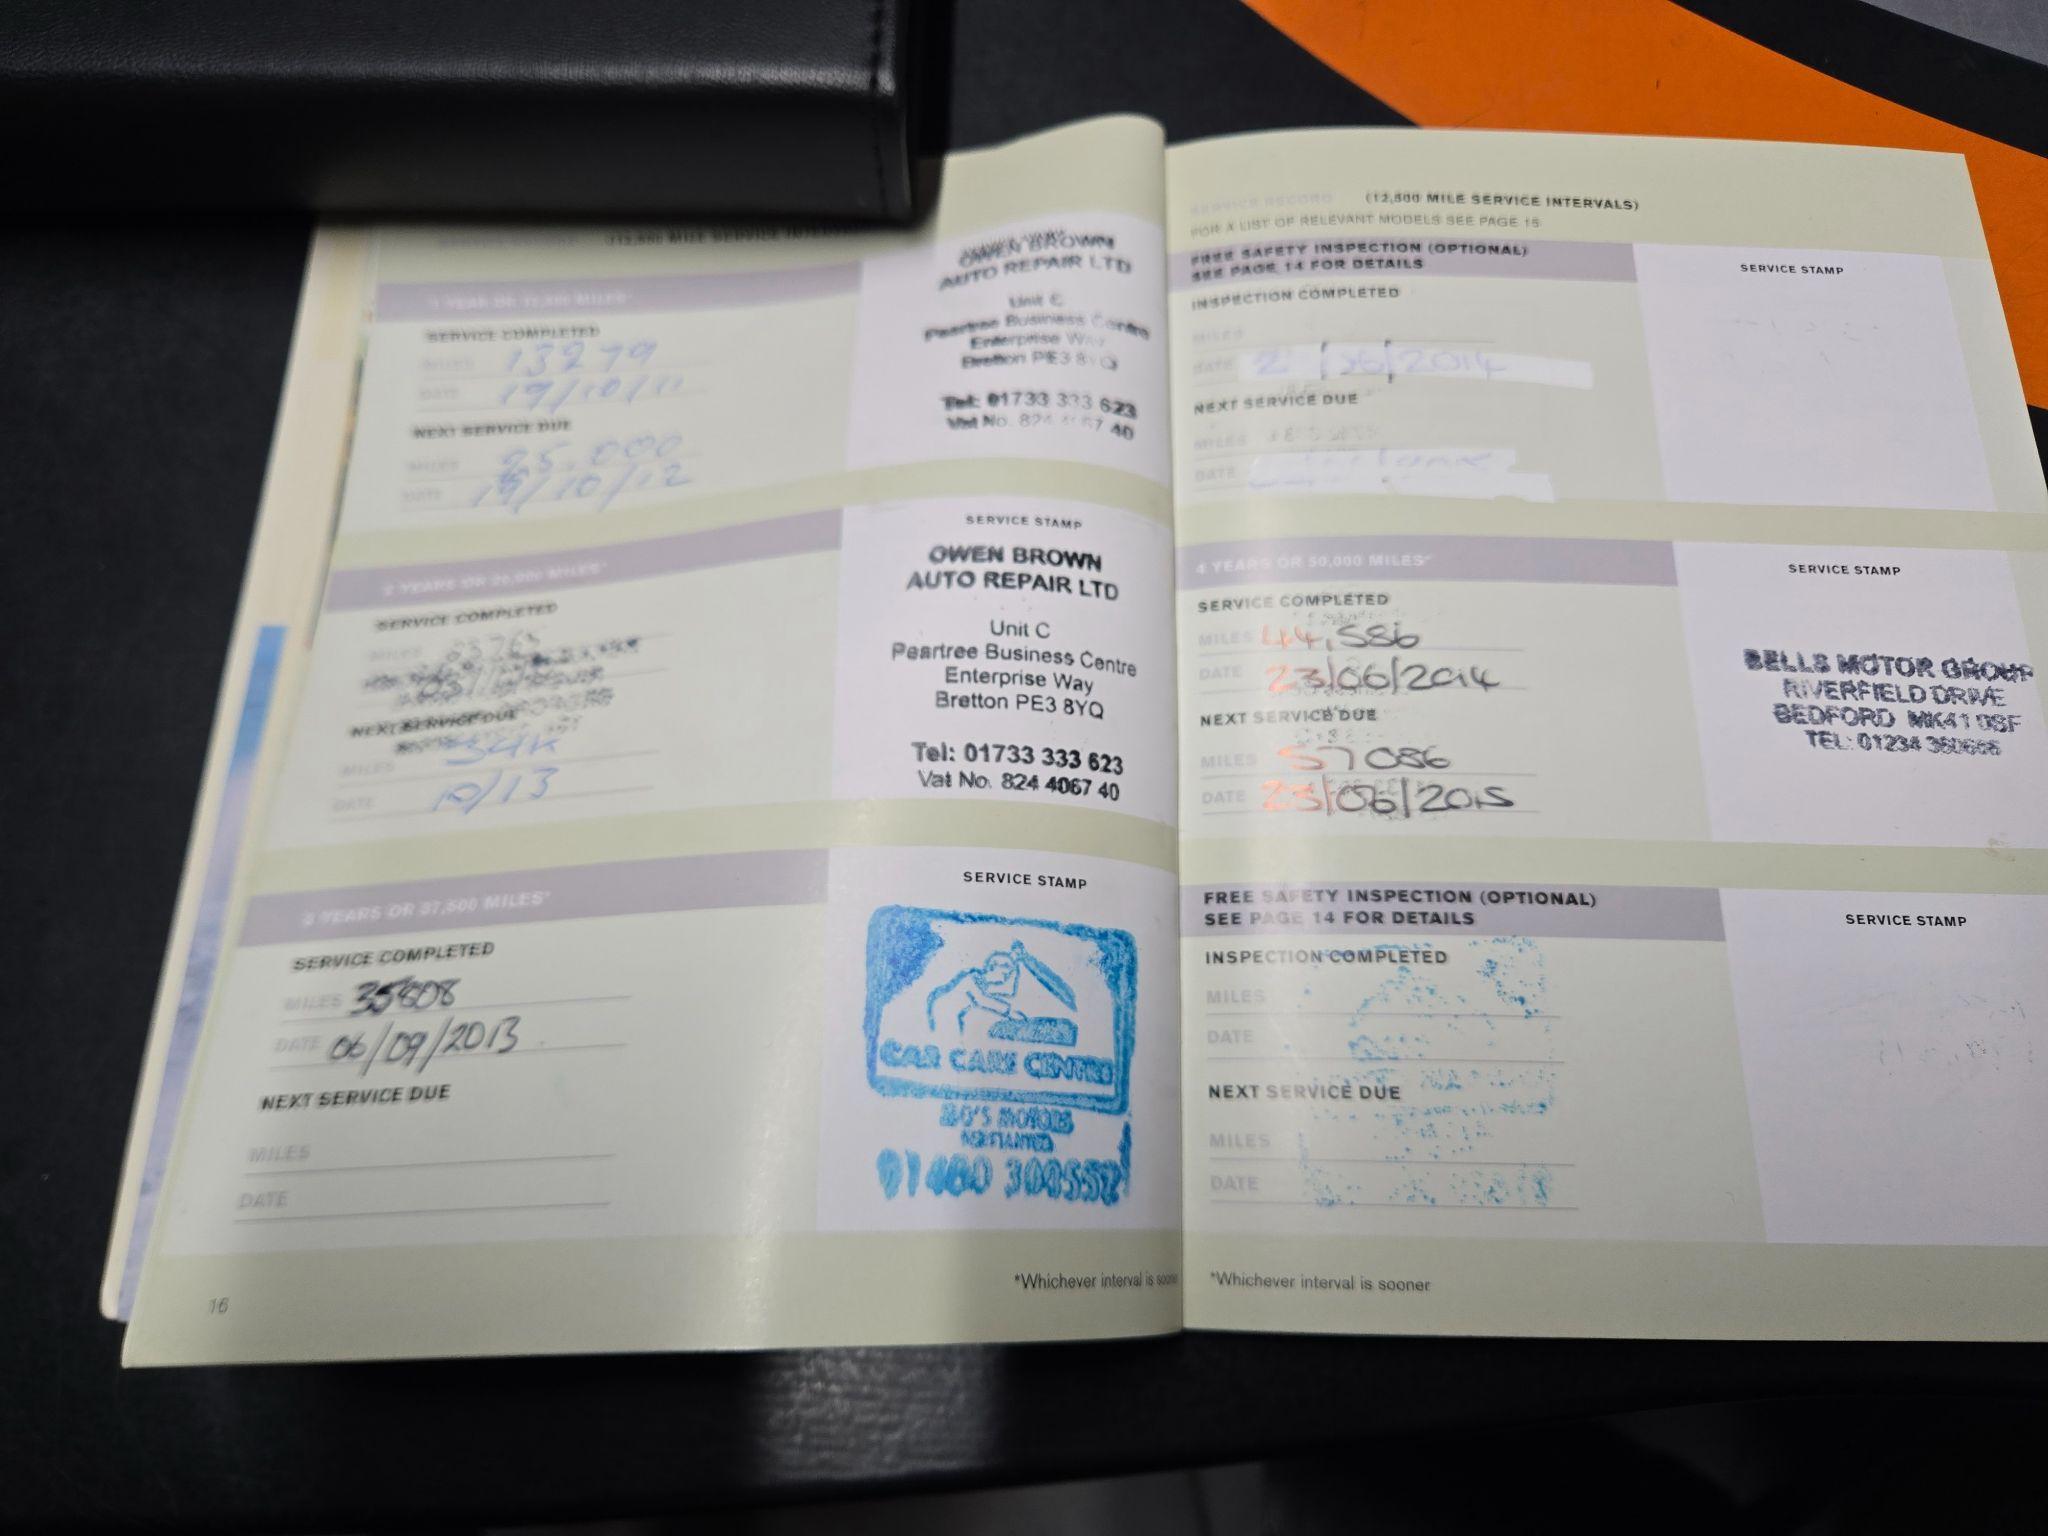 1 YEAR OR 12,500 MILES*
SERVICE COMPLETED
MILES 13279
DATE 19/10/11
NEXT SERVICE DUE
MILES 25,000
DATE 19/10/12
OWEN BROWN
AUTO REPAIR LTD
Unit C
Peartree Business Centre
Enterprise Way
Bretton PE3 8YQ
Tel: 01733 333 623
Vat No. 824 4067 40
SERVICE COMPLETED
MILES
NEXT SERVICE DUE
MILES 34K
DATE 10/13
SERVICE STAMP
OWEN BROWN
AUTO REPAIR LTD
Unit C
Peartree Business Centre
Enterprise Way
Bretton PE3 8YQ
Tel: 01733 333 623
Vat No. 824 4067 40
3 YEARS OR 37,500 MILES*
SERVICE COMPLETED
MILES 35808
DATE 06/09/2013
NEXT SERVICE DUE
MILES
DATE
SERVICE STAMP
CAR CARE CENTRE
MOTORS
*Whichever interval is sooner
16
SERVICE RECORD (12,500 MILE SERVICE INTERVALS)
FOR A LIST OF RELEVANT MODELS SEE PAGE 15
FREE SAFETY INSPECTION (OPTIONAL)
SEE PAGE 14 FOR DETAILS
INSPECTION COMPLETED
MILES
DATE
NEXT SERVICE DUE
MILES
DATE
SERVICE STAMP
4 YEARS OR 50,000 MILES*
SERVICE COMPLETED
MILES 44,586
DATE 23/06/2014
NEXT SERVICE DUE
MILES 57086
DATE 23/06/2015
SERVICE STAMP
BELLS MOTOR GROUP
RIVERFIELD DRIVE
BEDFORD MK41 0SF
TEL: 01234
FREE SAFETY INSPECTION (OPTIONAL)
SEE PAGE 14 FOR DETAILS
INSPECTION COMPLETED
MILES
DATE
NEXT SERVICE DUE
MILES
DATE
SERVICE STAMP
*Whichever interval is sooner